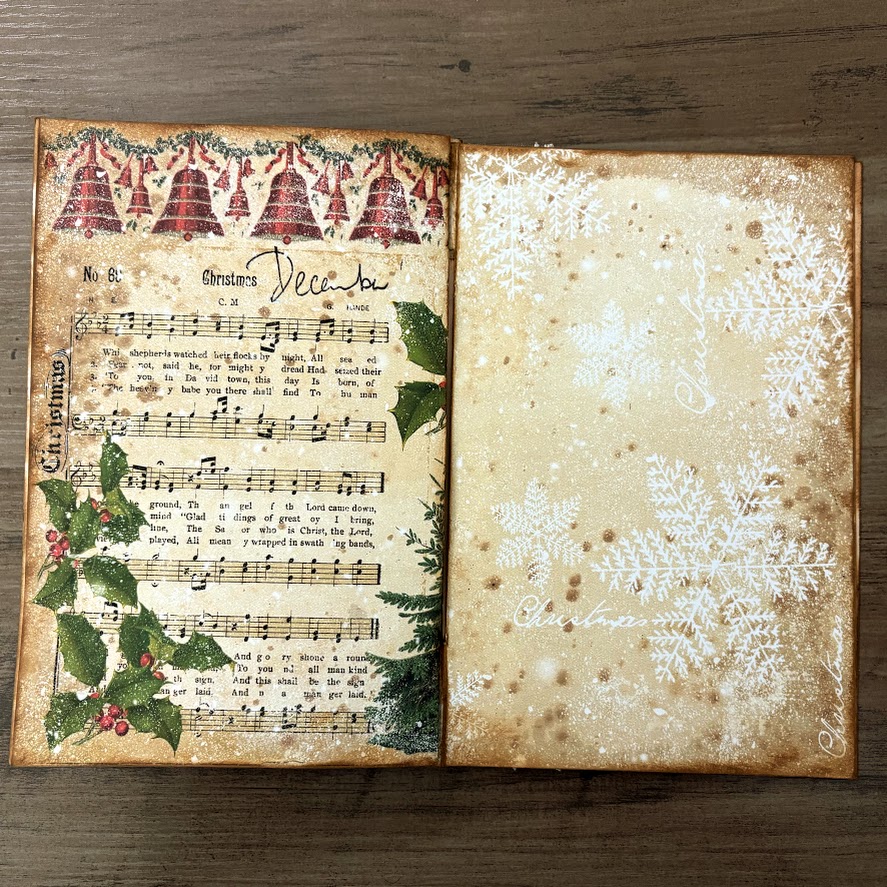 No 66
Christmas December
C. M
Christmas
shepherds watched heir flocks by night, All sea ed
2. not, said he, for might y dread Had seized their
3. To you, in Da vid town, this day Is born, of
The heav y babe you there shall find To hu man
ground, Th an gel f th Lord came down,
mind "Glad ti dings of great oy I bring,
line, The Sa or who is Christ, the Lord,
played, All mean y wrapped in swath ing bands,
And g o ry shone a roun
To you n all man kind
th sign, And this shall be the sign
an ger laid, And n a man ger laid.
Christmas
Christmas
Christmas